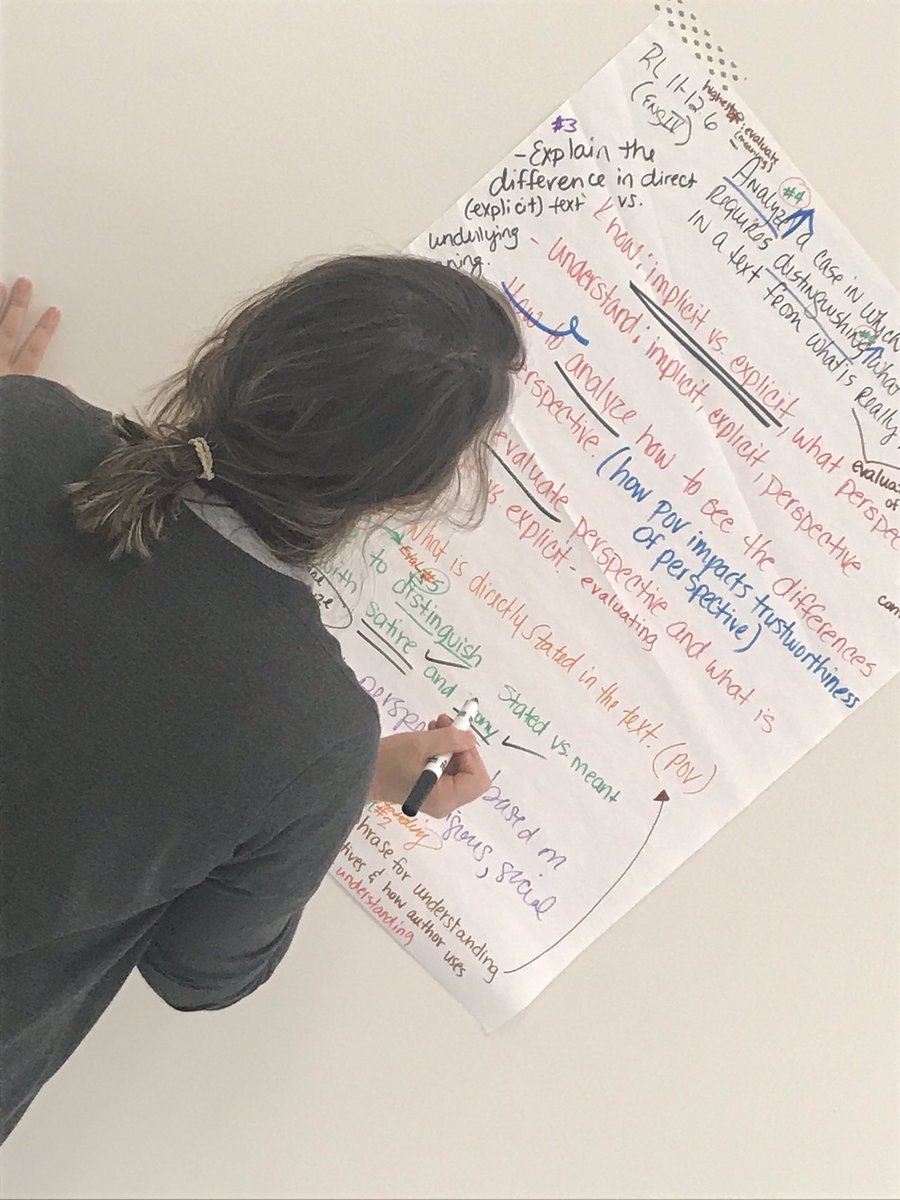 RL 11-12 6
(ENG IV)
highest : evaluate
(meaning)
#4
Analyze a case in which
requires distinguishing what
in a text from what is really
evaluat
of
con
#3
- Explain the
difference in direct
(explicit) text vs.
undullying
ning.
know: implicit vs. explicit, what perspec
- understand: implicit explicit, perspective
How to analyze how to see the differences
erspective. (how POV impacts trustworthiness
of perspective)
evaluate perspective and what is
vs. explicit - evaluating
What is directly stated in the text. (POV)
Eval #5
to distinguish
with satire ✓ and ony ✓ stated vs. meant
perspe
based on
igious, social
#2
hrase for understanding
tives & how author uses
understanding